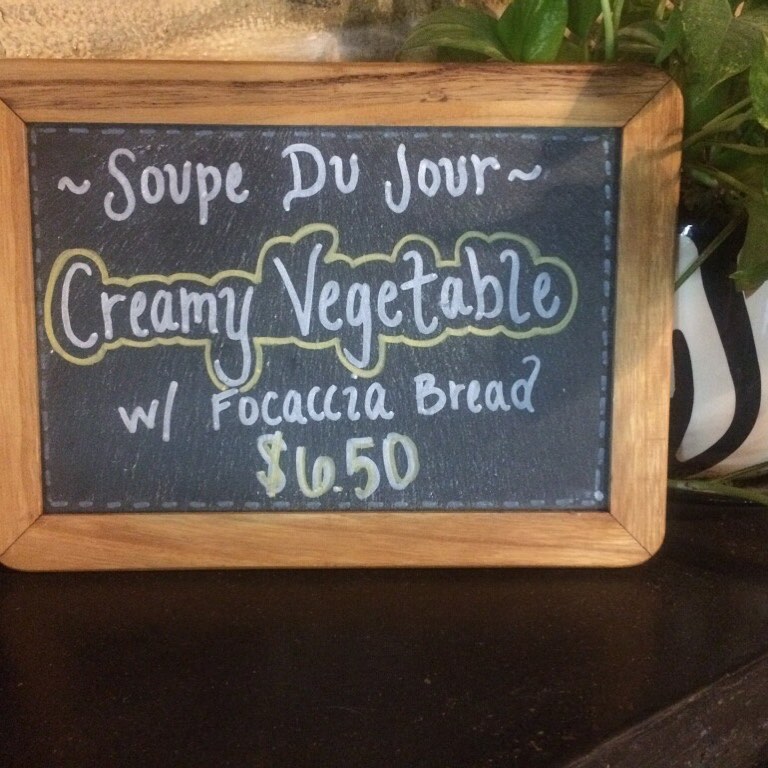 ~ Soupe Du Jour ~
Creamy Vegetable
w/ Focaccia Bread
$6.50